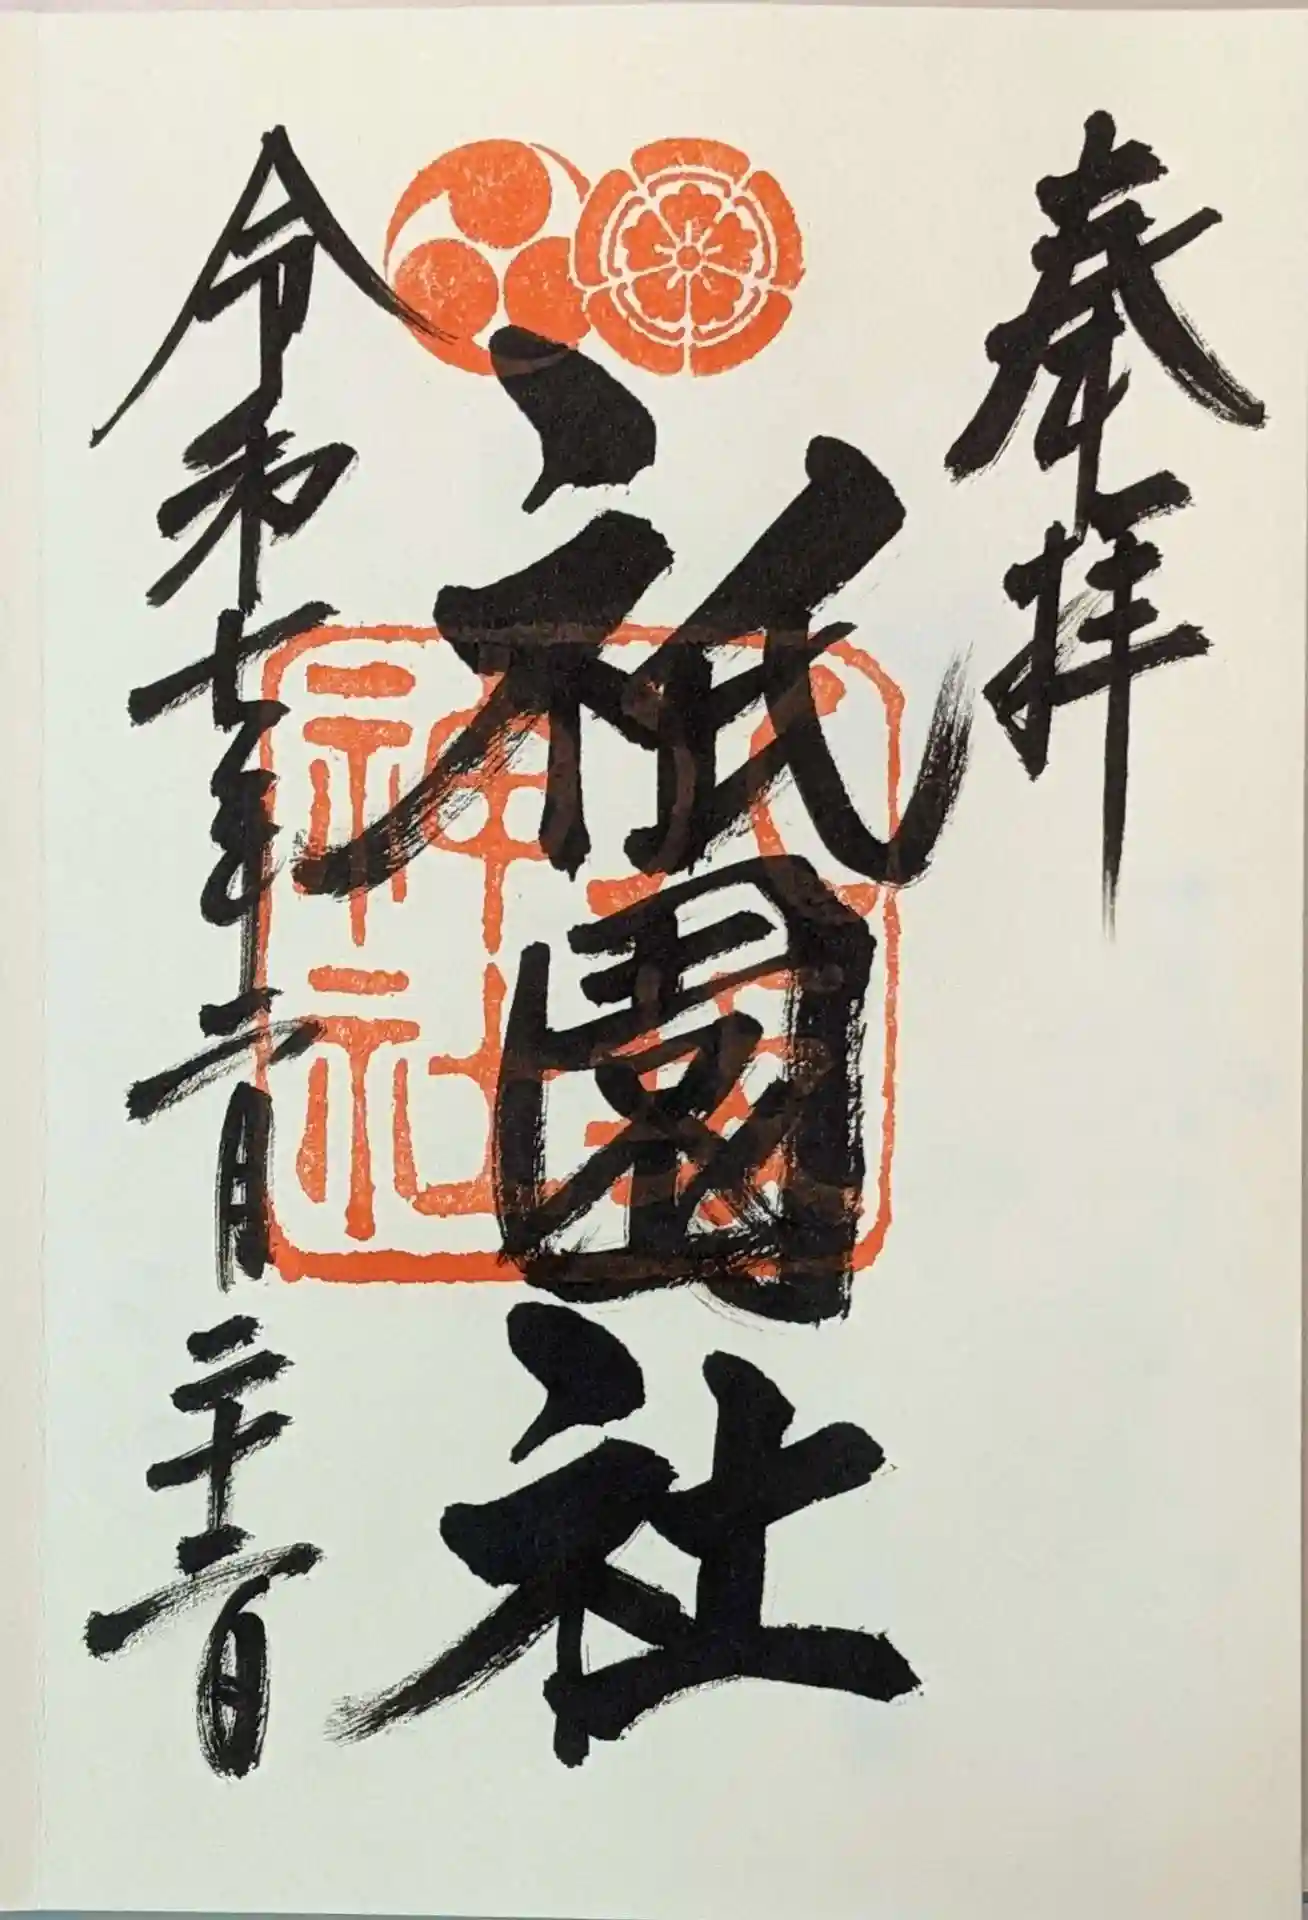 奉拝
祇園社
八坂神社
令和七年二月二十二日